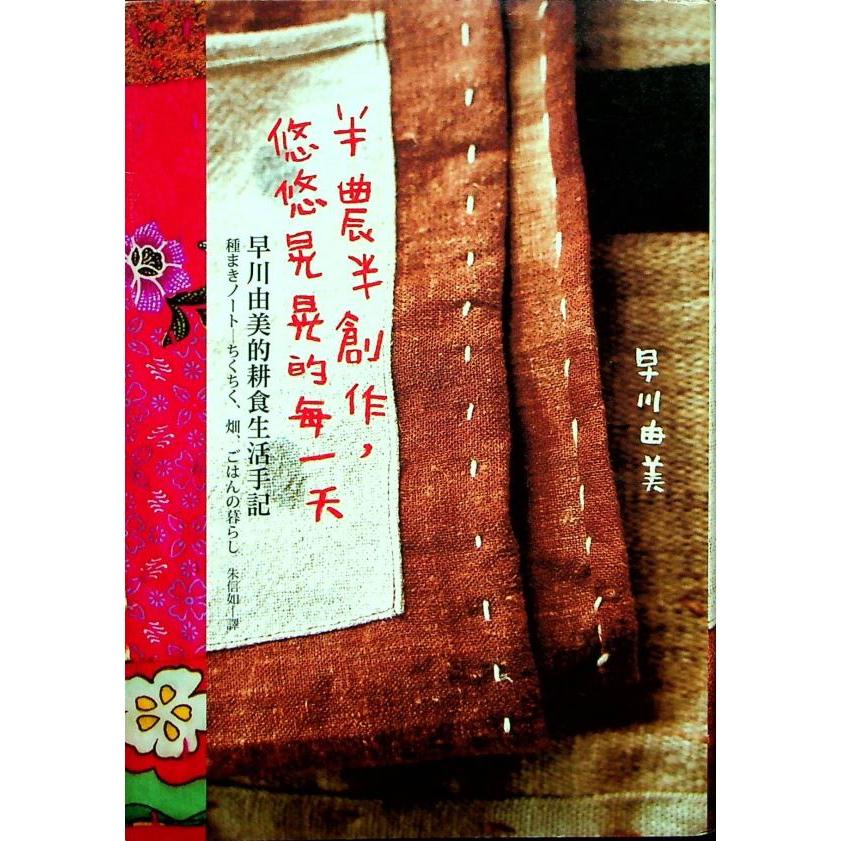 半農半創作，
悠悠晃晃的每一天
早川由美的耕食生活手記
種まきノート—ちくちく、畑、ごはんの暮らし
朱信如—譯
早川由美